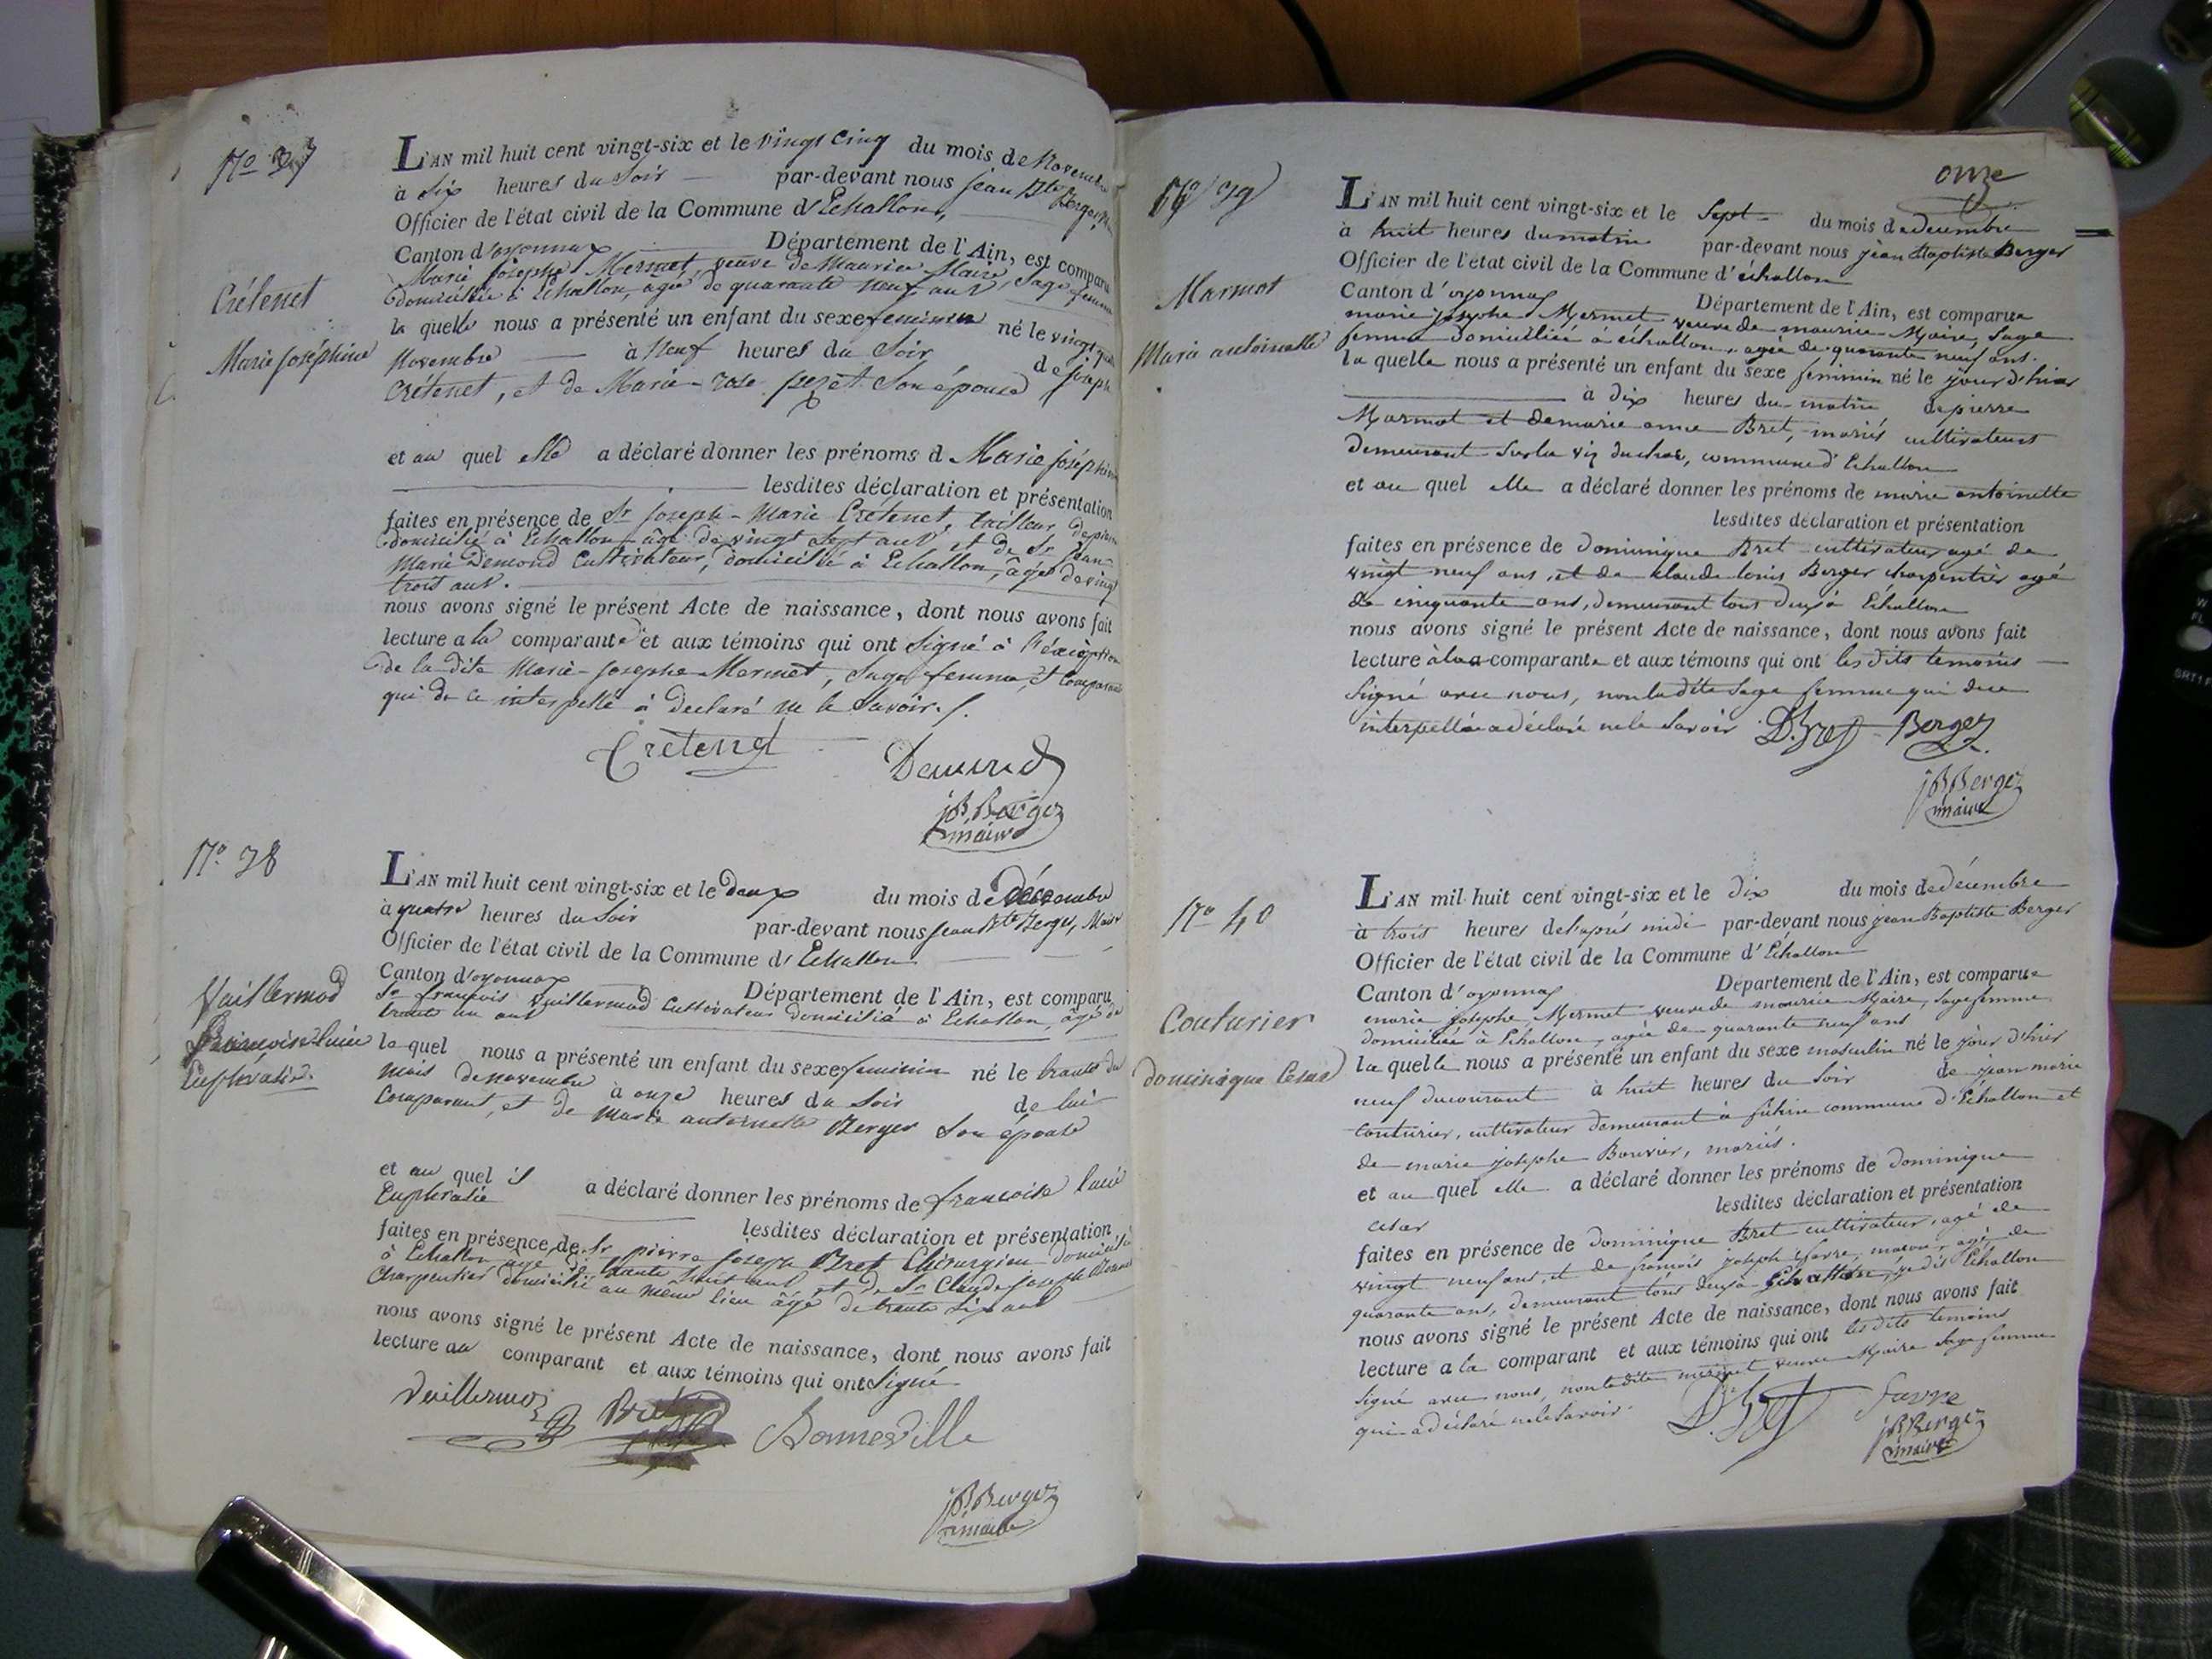 No 37
Crétenet
Marie Joséphine
L'AN mil huit cent vingt-six et le vingt cinq du mois de Novembre
à Six heures du Soir par-devant nous Jean Bte Berger
Officier de l'état civil de la Commune d'Echallon,
Canton d'oyonnax Département de l'Ain, est comparu
Marie Josephe Mermet, veuve de Maurice Maire, Sage femme
domiciliée à Echallon, agée de quarante neuf ans
la quelle nous a présenté un enfant du sexe feminin né le vingt quatre
Novembre à Neuf heures du Soir de Joseph
Crétenet, et de Marie-rose son épouse
et au quel elle a déclaré donner les prénoms d Marie Joséphine
lesdites déclaration et présentation
faites en présence de Sr Joseph-Marie Crétenet, tailleur de pierre
domicilié à Echallon âgé de vingt Sept ans et de Sr Jean-
Marie Demond Cultivateur, domicilié à Echallon, âgé de vingt
trois ans.
nous avons signé le présent Acte de naissance, dont nous avons fait
lecture a la comparante et aux témoins qui ont Signé à l'éxception
de la dite Marie-Josephe Mermet, Sage femme, et Comparante
qui de ce interpellé à declaré ne le Savoir.
Crétenet
Demond
JB. Berger
maire
No 38
Vuillermod
Francoise lucie
Euphrasie
L'AN mil huit cent vingt-six et le deux du mois de Décembre
à quatre heures du Soir par-devant nous Jean Bte Berger, Maire
Officier de l'état civil de la Commune d'Echallon
Canton d'oyonnax Département de l'Ain, est comparu
Sr françois Vuillermod Cultivateur domicilié à Echallon, âgé de
trente un ans
le quel nous a présenté un enfant du sexe feminin né le trente du
mois de novembre à onze heures du Soir de lui
Comparant, et de Marie antoinette Berger Son épouse
et au quel il a déclaré donner les prénoms de francoise lucie
Euphrasie
lesdites déclaration et présentation
faites en présence de Sr pierre Joseph Bret Chirurgien domicilié
à Echallon âgé de trente huit ans et de Sr Claude Joseph
Charpentier domicilié au même lieu âgé de trente Six ans
nous avons signé le présent Acte de naissance, dont nous avons fait
lecture au comparant et aux témoins qui ont Signé
Vuillermoz
Bret
Bonneville
JB. Berger
maire
onze
No 39
Marmot
Marie antoinette
L'AN mil huit cent vingt-six et le Sept du mois de decembre
à huit heures du matin par-devant nous jean Baptiste Berger
Officier de l'état civil de la Commune d'échallon
Canton d'oyonnax Département de l'Ain, est comparue
marie josephe Mermet veuve de maurice Maire, Sage
femme domiciliée à échallon, agée de quarante neuf ans.
la quelle nous a présenté un enfant du sexe feminin né le jour d'hier
à dix heures du matin de pierre
Marmot et de marie anne Bret, mariés cultivateurs
demeurant Sur la commune d'Echallon
et au quel elle a déclaré donner les prénoms de marie antoinette
lesdites déclaration et présentation
faites en présence de dominique Bret cultivateur agé de
vingt neuf ans, et de claude louis Berger charpentier agé
de cinquante ans, demeurant tous deux à Echallon
nous avons signé le présent Acte de naissance, dont nous avons fait
lecture à la comparante et aux témoins qui ont les dits temoins
Signé avec nous, non la dite Sage femme qui de ce
interpellée a déclaré ne le Savoir
D. Bret
Berger
JB Berger
maire
No 40
Couturier
dominique Cesar
L'AN mil huit cent vingt-six et le dix du mois de decembre
à trois heures de l'après midi par-devant nous jean Baptiste Berger
Officier de l'état civil de la Commune d'Echallon
Canton d'oyonnax Département de l'Ain, est comparue
marie josephe Mermet veuve de maurice Maire, Sage femme
domiciliée à Echallon, agée de quarante neuf ans
la quelle nous a présenté un enfant du sexe masculin né le jour d'hier
neuf du courant à huit heures du Soir de jean marie
Couturier, cultivateur demeurant à commune d'Echallon et
de marie josephe Bouvier, mariés.
et au quel elle a déclaré donner les prénoms de dominique
cesar
lesdites déclaration et présentation
faites en présence de dominique Bret cultivateur, agé de
vingt neuf ans, et de francois joseph favre, macon, agé de
quarante ans, demeurant tous deux à Echallon, je dis Echallon
nous avons signé le présent Acte de naissance, dont nous avons fait
lecture a la comparant et aux témoins qui ont les dits temoins
Signé avec nous, non la dite mermet veuve Maire Sage femme
qui a déclaré ne le Savoir.
D. Bret
favre
JB Berger
maire